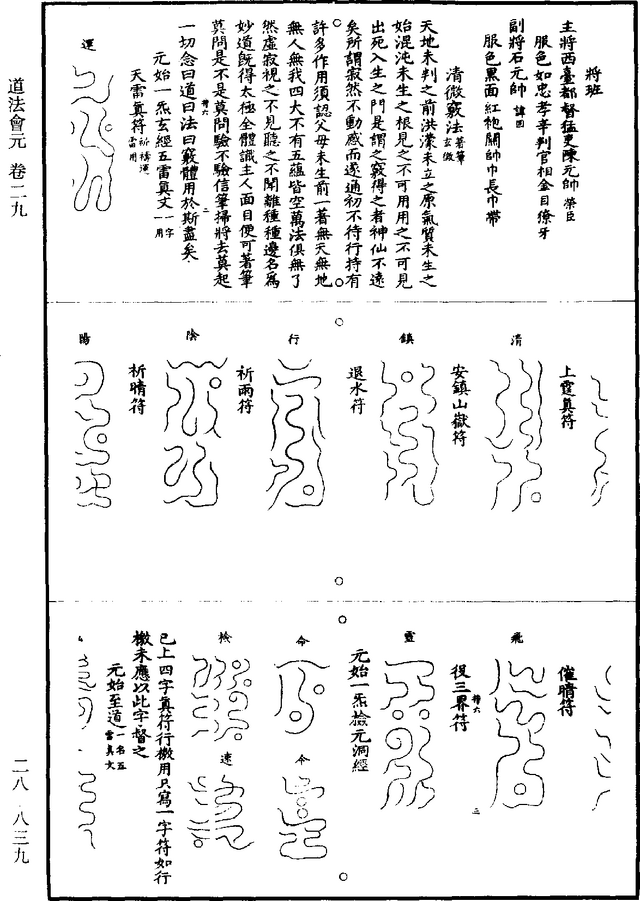 道法會元 卷二九
二八·八三九
將班
主將西臺都督猛吏陳元帥榮臣
服色如忠孝辛判官相金目獠牙
副將石元帥諱四
服色黑面紅袍關帥巾長巾帶
清微竅法著筆玄微
天地未判之前洪濛未立之原氣質未生之
始混沌未生之根見之不可用用之不可見
出死入生之門是謂之竅得之者神仙不遠
矣所謂寂然不動感而遂通初不待行持有
許多作用須認父母未生前一著無天無地
無人無我四大不有五蘊皆空萬法俱無了
然虛寂視之不見聽之不聞離種種邊名為
妙道既得太極全體識主人面目便可著筆
莫問是不是莫問驗不驗信筆掃將去莫起
一切念曰道曰法曰竅體用於斯盡矣
元始一炁玄經五雷真文一字一用
天雷真符祈禱通雷用
運
上霆真符
清
安鎮山嶽符
鎮
退水符
行
祈雨符
陰
祈晴符
陽
催晴符
飛
役三界符
靈
元始一炁捡元洞經
命
令
捡
速
已上四字真符行檄用只寫一字符如行
檄未應以此字督之
元始至道一名五雷真文